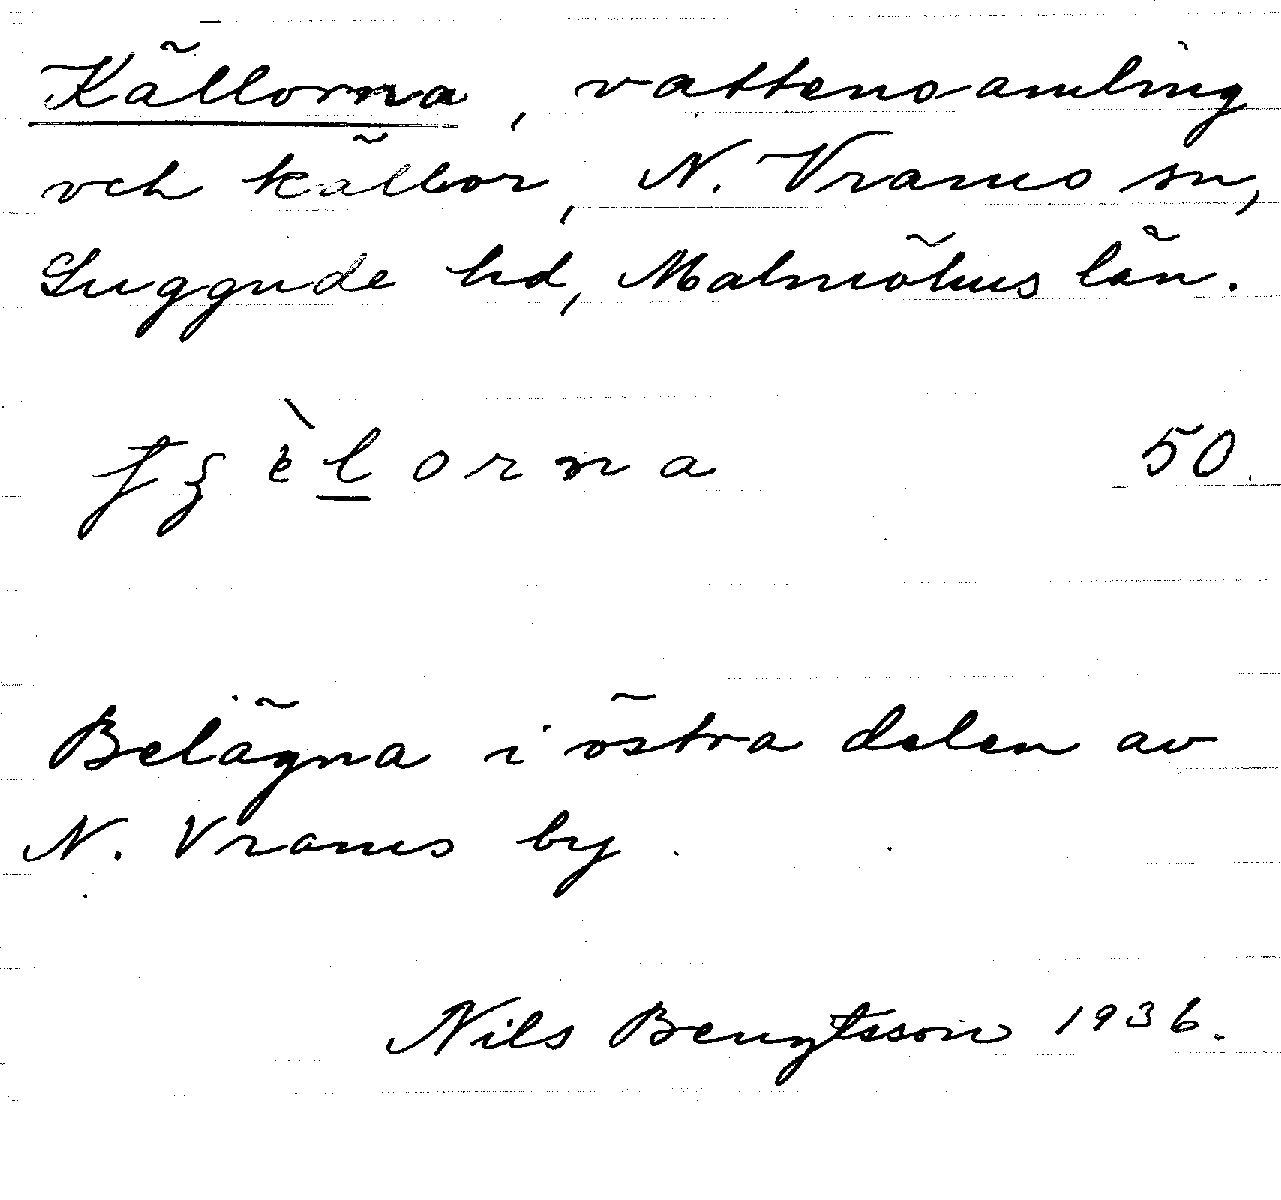 Källorna, vattensamling
och källor, N. Vrams sn,
Luggude hd, Malmöhus län.
50.
Belägna i östra delen av
N. Vrams by.
Nils Bengtsson 1936.